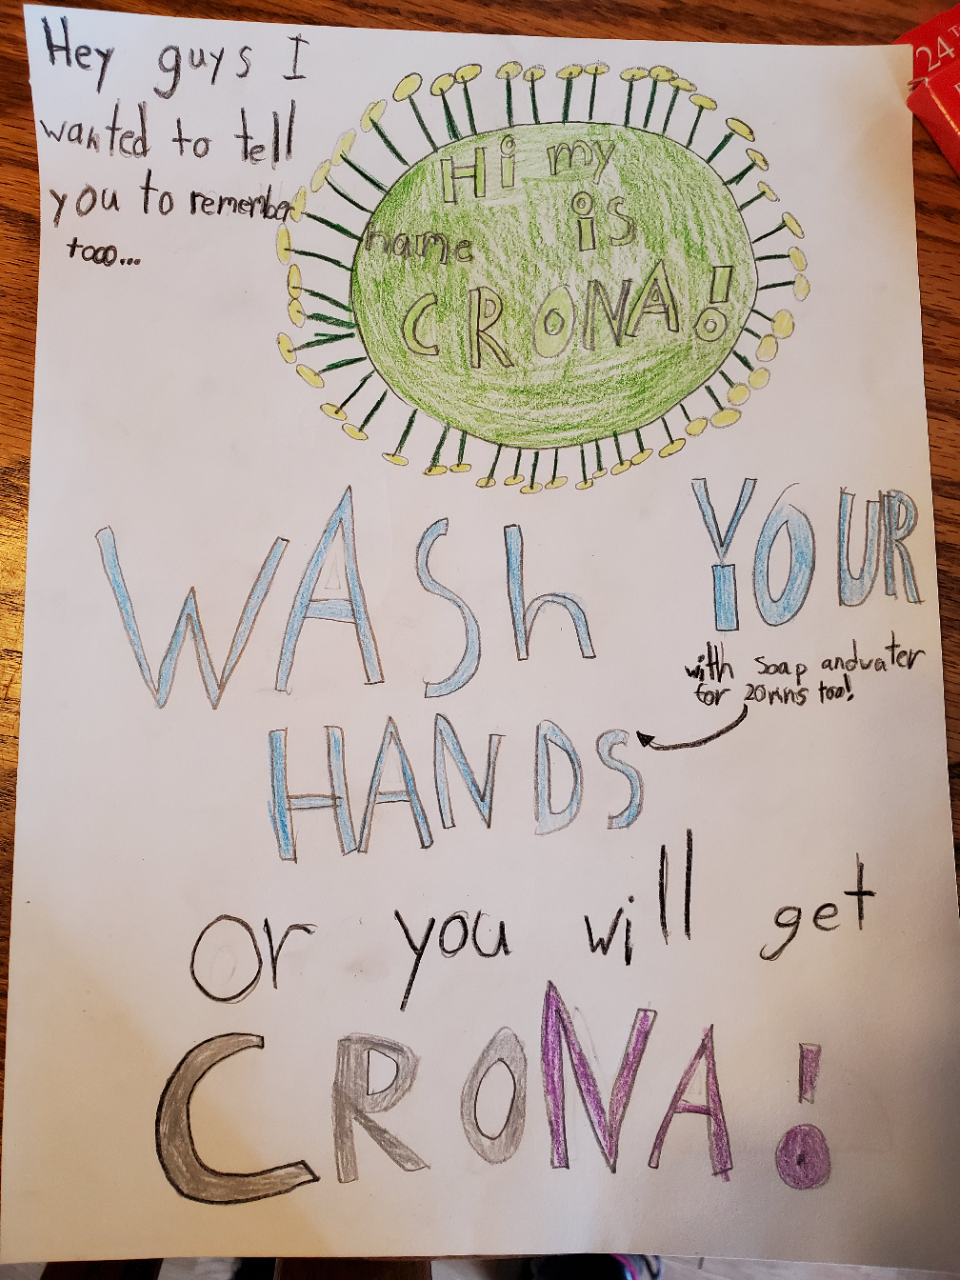 Hey guys I
wanted to tell
you to remember
tooo...
Hi my
name is
CRONA!
WASh YOUR
with soap and water
for 20 mins too!
HANDS
or you will get
CRONA!
24